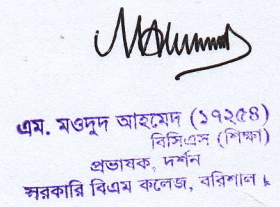 এম. মওদুদ আহমেদ (১৭২৫৪)
বিসিএস (শিক্ষা)
প্রভাষক, দর্শন
সরকারি বিএম কলেজ, বরিশাল।